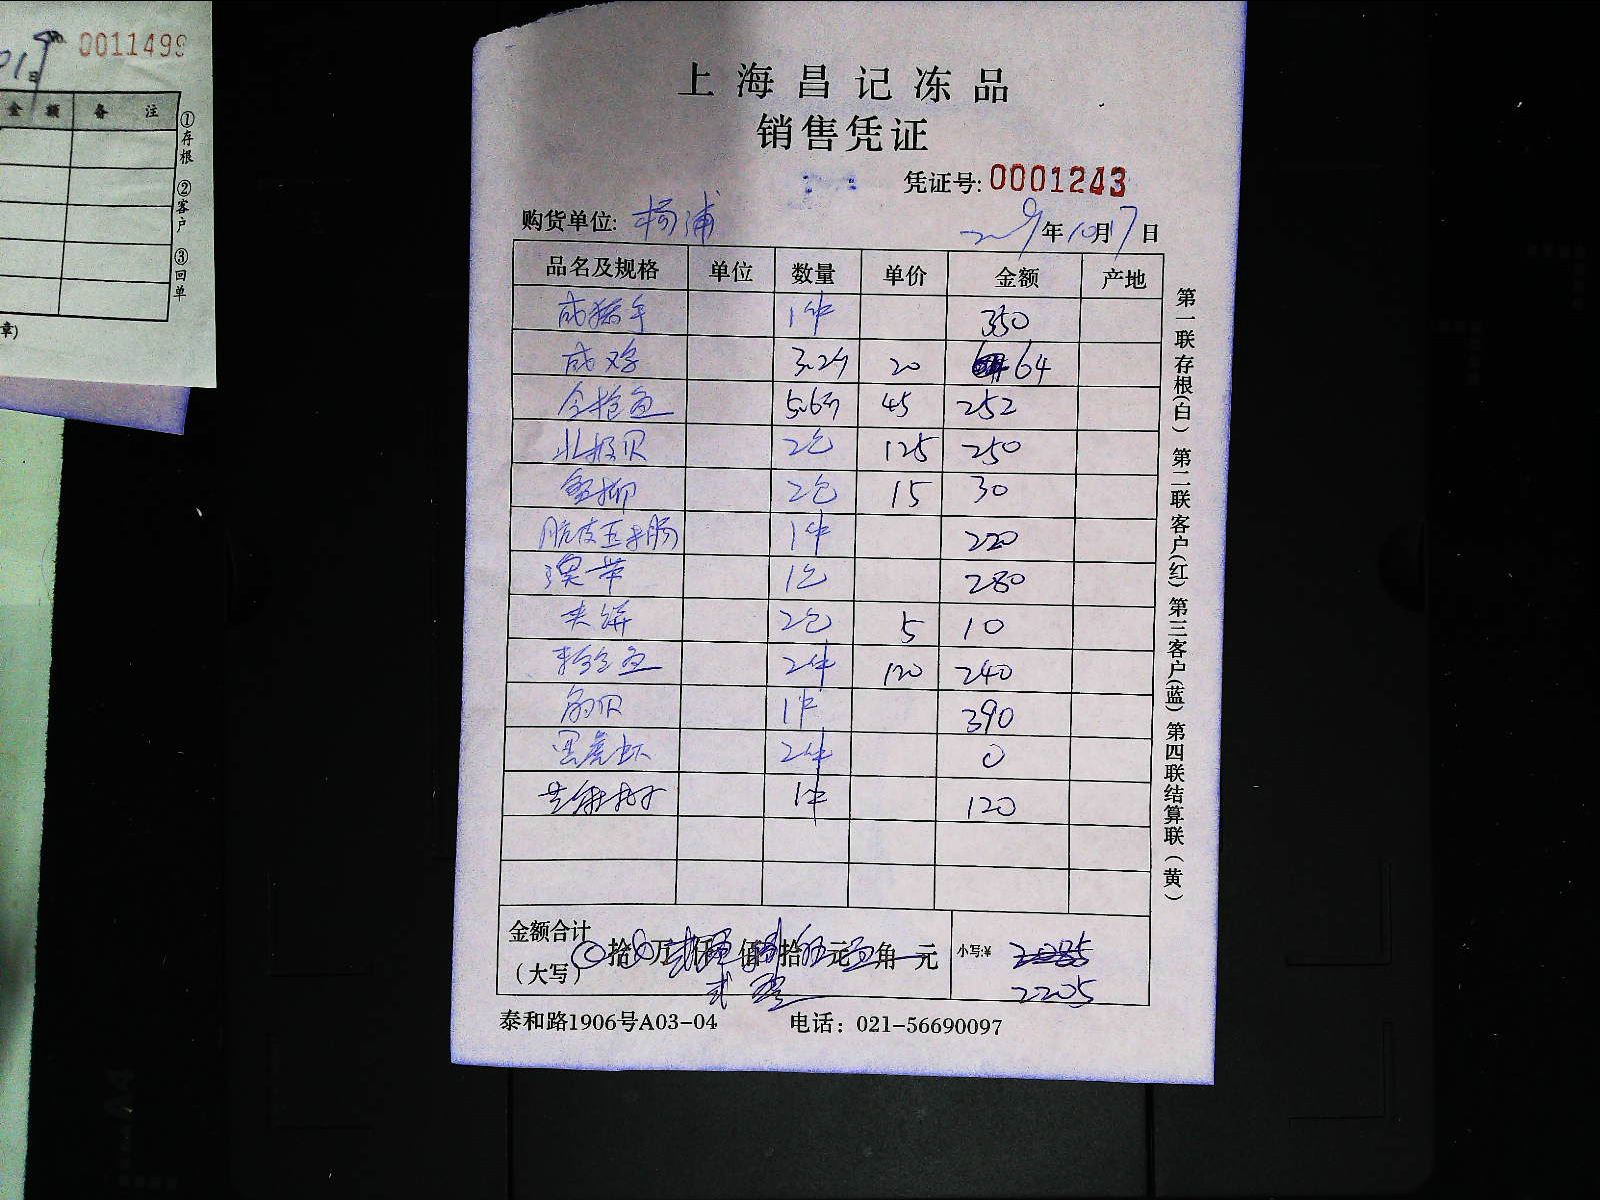 0011499
金 额 备 注
①存根 ②客户 ③回单
章)
上海昌记冻品
销售凭证
凭证号: 0001243
购货单位: 杨浦
2019年10月17日
品名及规格 单位 数量 单价 金额 产地
咸猪手 1件 350
咸鸡 3.2斤 20 64
金枪鱼 5.6斤 45 252
北极贝 2包 125 250
蟹柳 2包 15 30
脆皮玉米肠 1件 220
澳带 1包 280
夹饼 2包 5 10
多春鱼 2件 120 240
扇贝 1件 390
黑虎虾 2件 0
1件 120
金额合计
(大写) 拾 万 仟 佰 拾 元 角 元
贰 零
小写:¥ 2085
2205
泰和路1906号A03-04 电话：021-56690097
第一联存根(白) 第二联客户(红) 第三客户(蓝) 第四联结算联(黄)